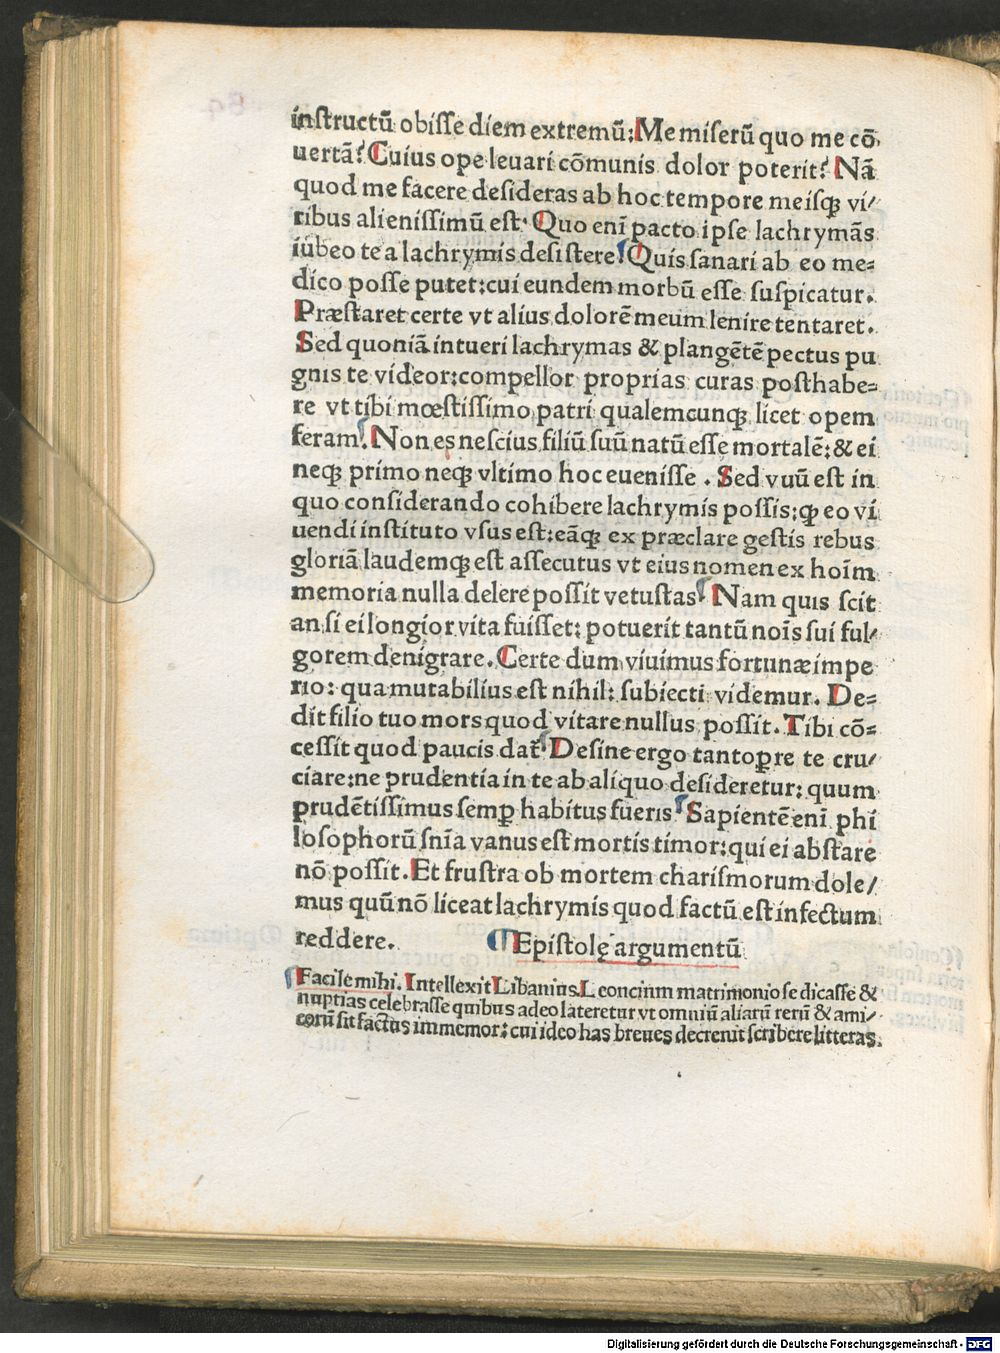 inſtructū obiſſe diem extremū: Me miſerū quo me cō
uertā? Cuius ope leuari cōmunis dolor poterit? Nā
quod me facere deſideras ab hoc tempore meiſqꝫ vi/
ribus alieniſſimū eſt. Quo eni pacto ipſe lachrymās
iubeo te a lachrymis deſiſtere? Quis ſanari ab eo me=
dico poſſe putet: cui eundem morbū eſſe ſuſpicatur.
Præſtaret certe vt alius dolorē meum lenire tentaret.
Sed quoniā intueri lachrymas & plangētē pectus pu
gnis te videor: compellor proprias curas poſthabe=
re vt tibi mœſtiſſimo patri qualemcunqꝫ licet opem
feram. Non es neſcius filiū ſuū natū eſſe mortalē: & ei
neqꝫ primo neqꝫ vltimo hoc eueniſſe. Sed vnū eſt in
quo conſiderando cohibere lachrymis poſſis: ꝙ eo vi
uendi inſtituto vſus eſt: eāqꝫ ex præclare geſtis rebus
gloriā laudemqꝫ eſt aſſecutus vt eius nomen ex hoīm
memoria nulla delere poſſit vetuſtas. Nam quis ſcit
an ſi ei longior vita fuiſſet: potuerit tantū noīs ſui ful/
gorem denigrare. Certe dum viuimus fortunæ impe
rio: qua mutabilius eſt nihil: ſubiecti videmur. De=
dit filio tuo mors quod vitare nullus poſſit. Tibi cō=
ceſſit quod paucis dat̄. Deſine ergo tantoꝑe te cru/
ciare: ne prudentia in te ab aliquo deſideretur: quum
prudētiſſimus ſemꝑ habitus fueris. Sapientē eni phi
loſophorū ſnīa vanus eſt mortis timor: qui ei abſtare
nō poſſit. Et fruſtra ob mortem chariſmorum dole/
mus quū nō liceat lachrymis quod factū eſt infectum
reddere. ¶ Epiſtolę argumentū
¶ Facile mihi. Intellexit Libanius. Leoncium matrimonio ſe dicaſſe &
nuptias celebraſſe quibus adeo lateretur vt omniū aliarū rerū & ami/
corū ſit factus immemor: cui ideo has breues decreuit ſcribere litteras.
Digitalisierung gefördert durch die Deutsche Forschungsgemeinschaft - DFG